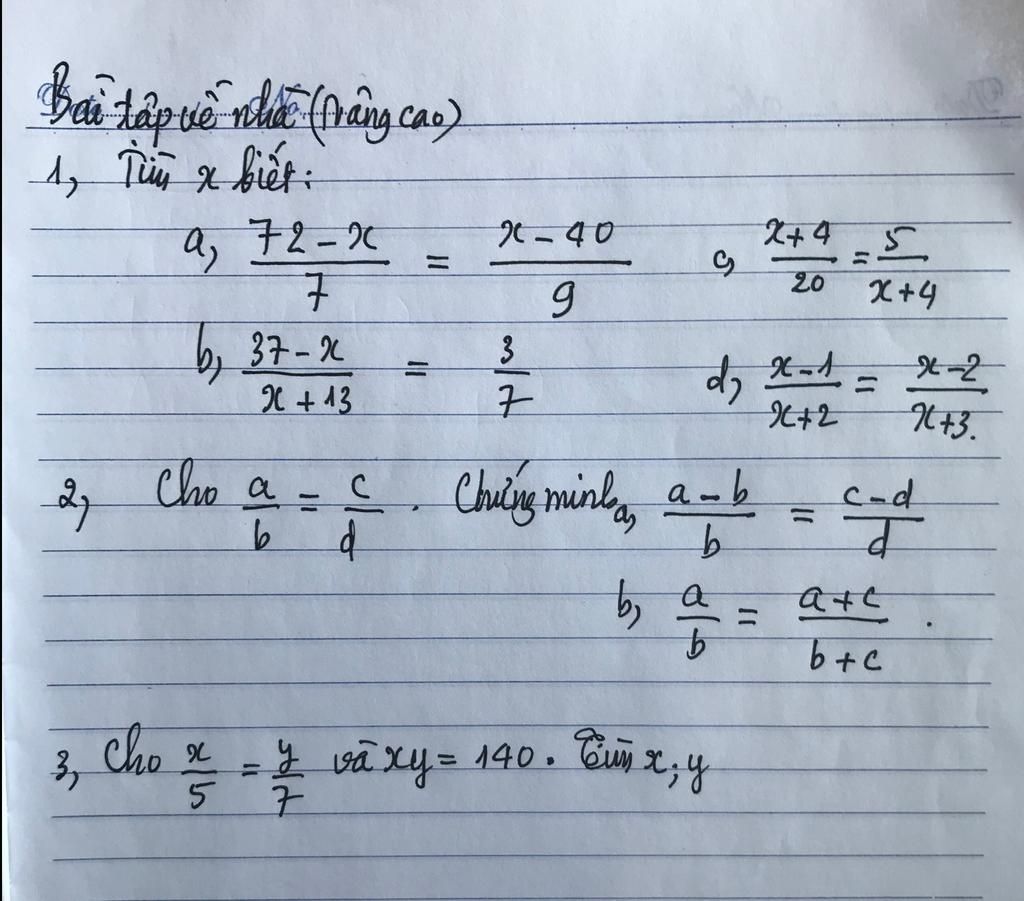 Bài tập về nhà (Nâng cao)
1, Tìm x biết:
a, \frac{72-x}{7} = \frac{x-40}{9} c, \frac{x+4}{20} = \frac{5}{x+4}
b, \frac{37-x}{x+13} = \frac{3}{7} d, \frac{x-1}{x+2} = \frac{x-2}{x+3}.
2, Cho \frac{a}{b} = \frac{c}{d}. Chứng minh a, \frac{a-b}{b} = \frac{c-d}{d}
b, \frac{a}{b} = \frac{a+c}{b+c}.
3, Cho \frac{x}{5} = \frac{y}{7} và xy = 140. Tìm x; y